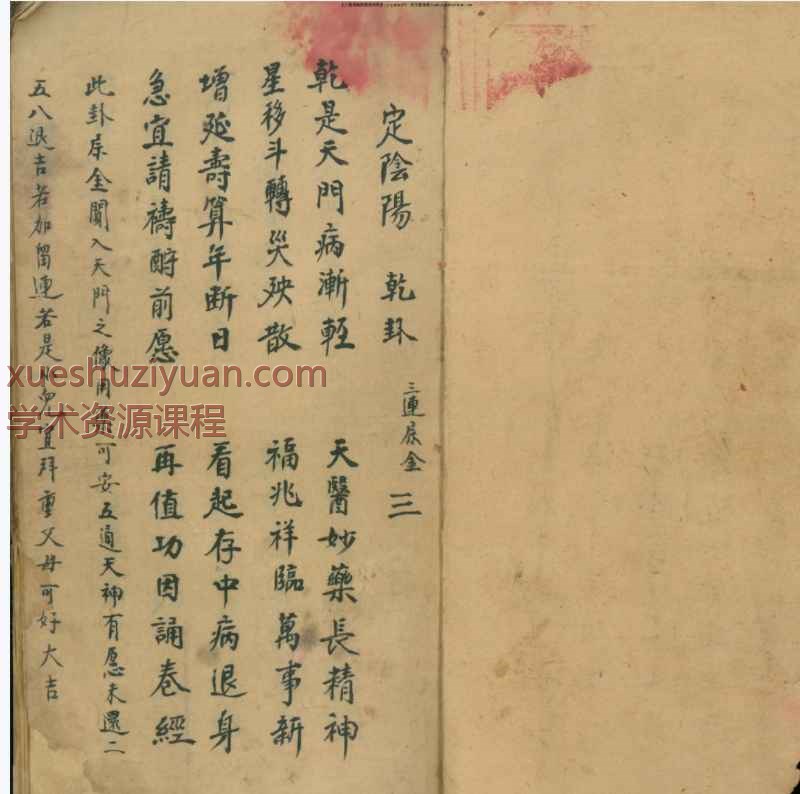 定陰陽 乾卦 三連屬金 ☰
乾是天門病漸輕 天醫妙藥長精神
星移斗轉災殃散 福兆祥臨萬事新
增延壽算年断日 看起存中病退身
急宜請禱酧前愿 再值功因誦卷經
此卦屬金闖入天門之像用 可安五通天神有愿未還二
五八退吉若加留連若是 宜拜重父母可好大吉
xueshuziyuan.com
学术资源课程